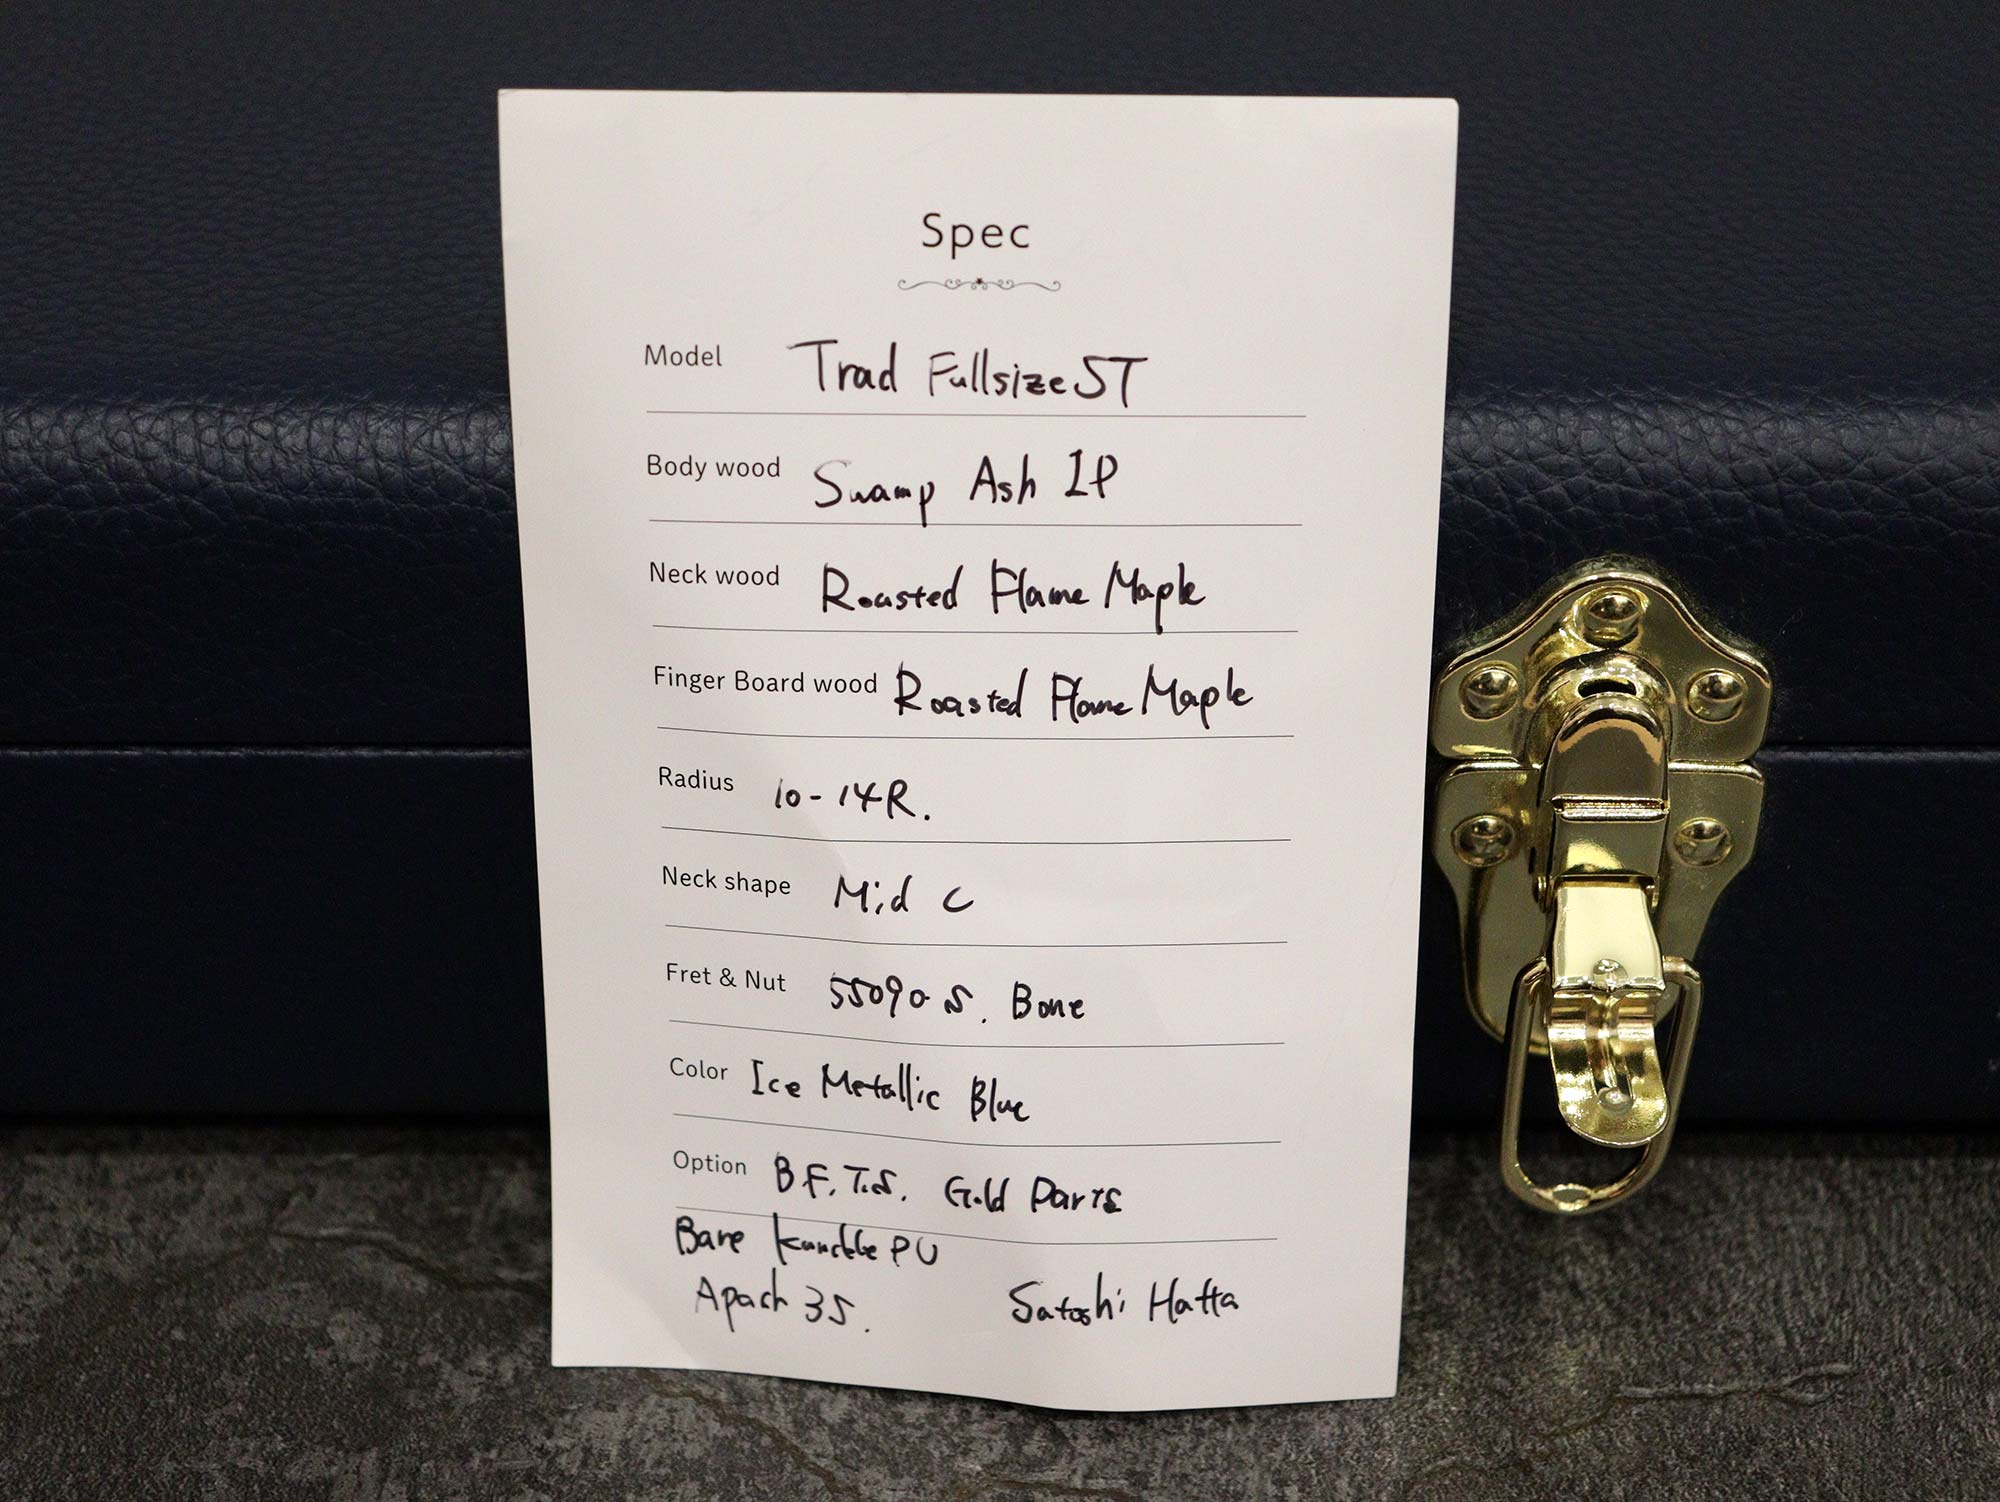 Spec
Model Trad Fullsize ST
Body wood Swamp Ash 1P
Neck wood Roasted Flame Maple
Finger Board wood Roasted Flame Maple
Radius 10-14R.
Neck shape Mid C
Fret & Nut 55090-S. Bone
Color Ice Metallic Blue
Option B.F.T.S. Gold Parts
Bare Kunckle PU
Apach 3S.
Satoshi Hatta